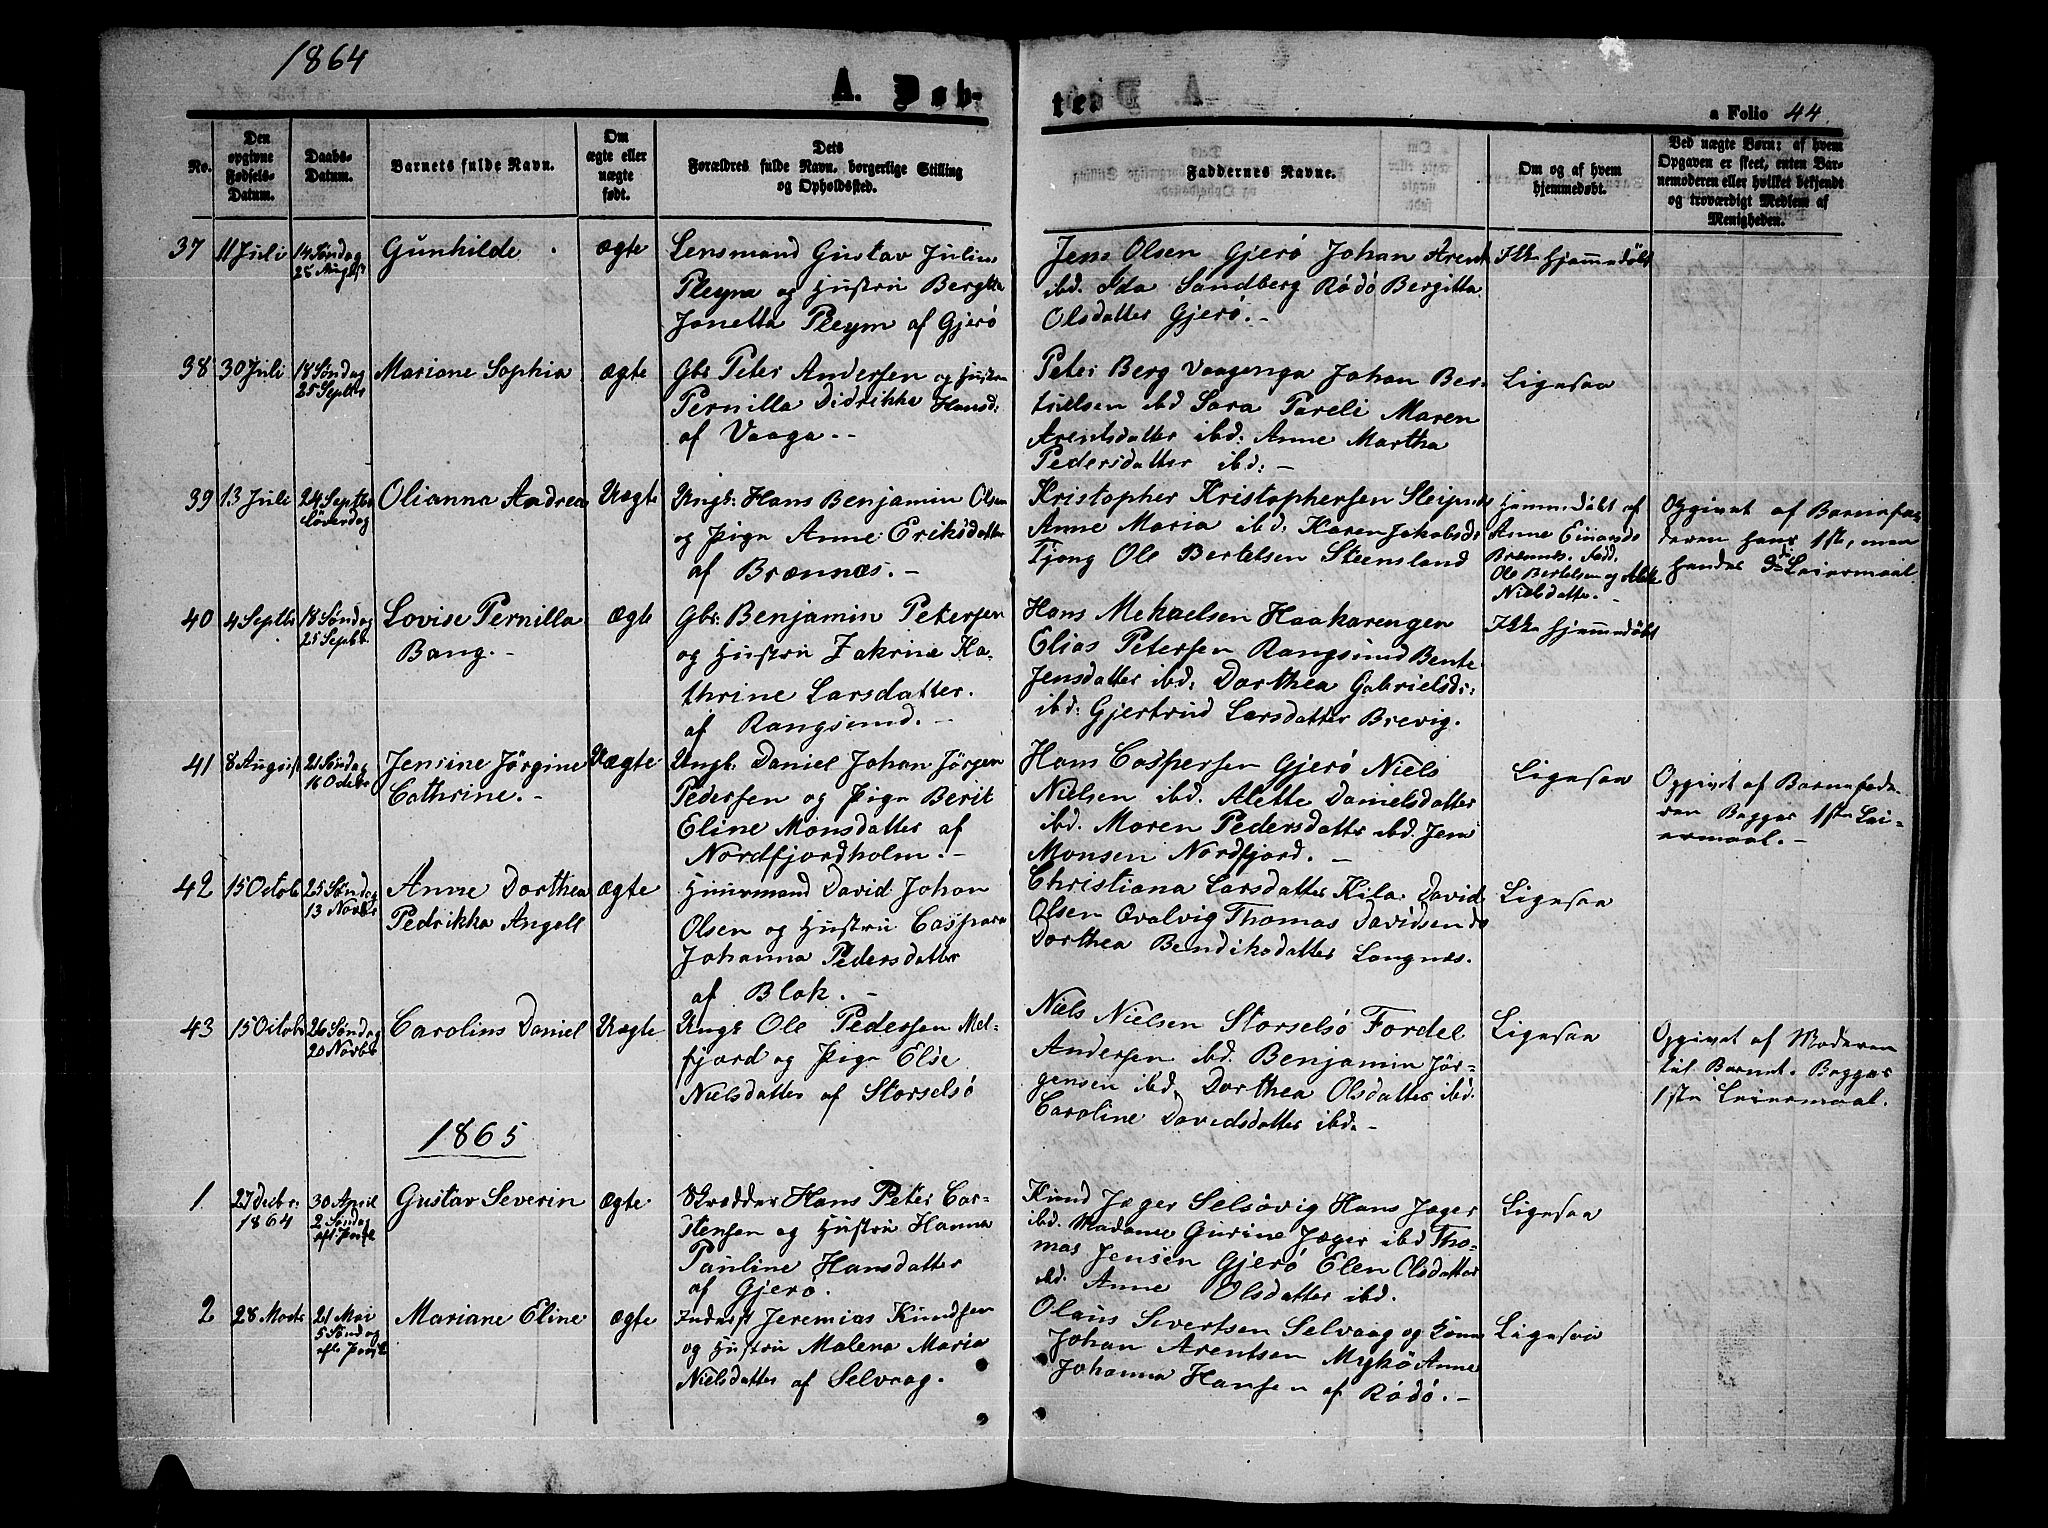 1864
A. Døb-
te.
a Folio 44.
No.
Den opgivne Fødsels-Datum.
Daabs-Datum.
Barnets fulde Navn.
Om ægte eller uægte født.
Dets Forældres fulde Navn, borgerlige Stilling og Opholdssted.
Faddernes Navne.
Om og af hvem hjemmedøbt.
Ved uægte Børn: af hvem Opgaven er skeet, enten Barnemoderen eller hvilket bekjendt og troværdigt Medlem af Menigheden.
37 11 Juli 14 Søndag Gunhilde ægte Lensmand Gustav Julius
25 August Pleym og Hustru Bergitta
Jonetta Pleym af Gjerö
Jens Olsen Gjerö Johan Arent
ibd. Ida Sandberg Rödö Bergitta
Olsdatter Gjerö.-
Ikke hjemmedöbt
38 30 Juli 18 Søndag Mariane Sophia ægte Gbr Peter Andersen og Hustru
25 Septbr Pernilla Didrikke Hansd:
af Vaaga.-
Peter Berg Vaagenga Johan Ber-
tielsen ibd Sara Pareli Maren
Arentsdatter ibd: Anne Martha
Pedersdatter ibd:-
Ligesaa
39 13 Juli 24 Septbr Olianna Andrea Uægte Ungk: Hans Benjamin Olsen
Løverdag og Pige Anne Eriksdatter
af Brænnæs.-
Kristopher Kristophersen
Anne Maria ibd: Karen Jakobsd:
Tjong Ole Bertelsen Steensland
Hjemmedöbt af
Anne
Ole Bertelsen og Alette
Nielsdatter.-
Opgivet af Barnefa-
deren hans 1ste, men
hendes 3die Leiermaal
40 4 Septbr 18 Søndag Lovise Pernilla ægte Gbr: Benjamin Petersen
25 Septbr. Bang.- og Hustru Zakrine Ka-
thrine Larsdatter.
af Rangsund.-
Hans Mekaelsen Haakarengen
Elias Petersen Rangsund Bente
Jensdatter ibd: Dorthea Gabrielsd:
ibd: Gjertrud Larsdatter Brevig.
Ikke hjemmedöbt
41 8 August 21 Søndag Jensine Jörgine Uægte Ungk: Daniel Johan Jörgen
16 Octbr Cathrine.- Pedersen og Pige Berit
Eline Monsdatter af
Nordfjordholm.-
Hans Caspersen Gjerö Niels
Nielsen ibd. Alette Danielsdatter
ibd. Maren Pedersdatter ibd. Jens
Monsen Nordfjord.-
Ligesaa
Opgivet af Barnefade-
ren Begges 1ste Lei-
ermaal.-
42 15 Octob 25 Søndag Anne Dorthea ægte Huusmand David Johan
13 Novbr Pedrikke Angell Olsen og Hustru Caspara
Johanna Pedersdatter
af Blok.-
Christiana Larsdatter Kila David
Olsen Qvalvig Thomas Davidsen do
Dorthea Bendiksdatter Langnes.
Ligesaa
43 15 Octobr 26 Søndag Carolius Daniel Uægte Ungk Ole Pedersen Mel-
20 Novbr fjord og Pige Else
Nielsdatter af Storselsö
Niels Nielsen Storselsö Fordel
Andersen ibd. Benjamin Jör-
gensen ibd. Dorthea Olsdatter ibd.
Caroline Davidsdatter ibd.-
Ligesaa
Opgivet af Moderen
til Barnet. Begges
1ste Leiermaal.
1865
1. 27 Decbr. 30 April Gustav Severin ægte Skrædder Hans Peter Car-
1864 2 Søndag stensen og Hustru Hanna
eft: Paask Pauline Hansdatter
af Gjerö.
Knud Jæger Selsövig Hans Jæger
ibd. Madame Gurine Jæger ibd Tho-
mas Jensen Gjerö Elen Olsdatter
ibd. Anne Olsdatter ibd.
Ligesaa
2 28 Marts 21 Mai Mariane Eline ægte Inderst Jeremias Knudsen
5 Søndag og Hustru Malena Maria
eft Paask Nielsdatter af Selvaag.
Olaus Sivertsen Selvaag og Kone
Johan Arentsen Mykö Anne
Johanna Hansen af Rödö.-
Ligesaa